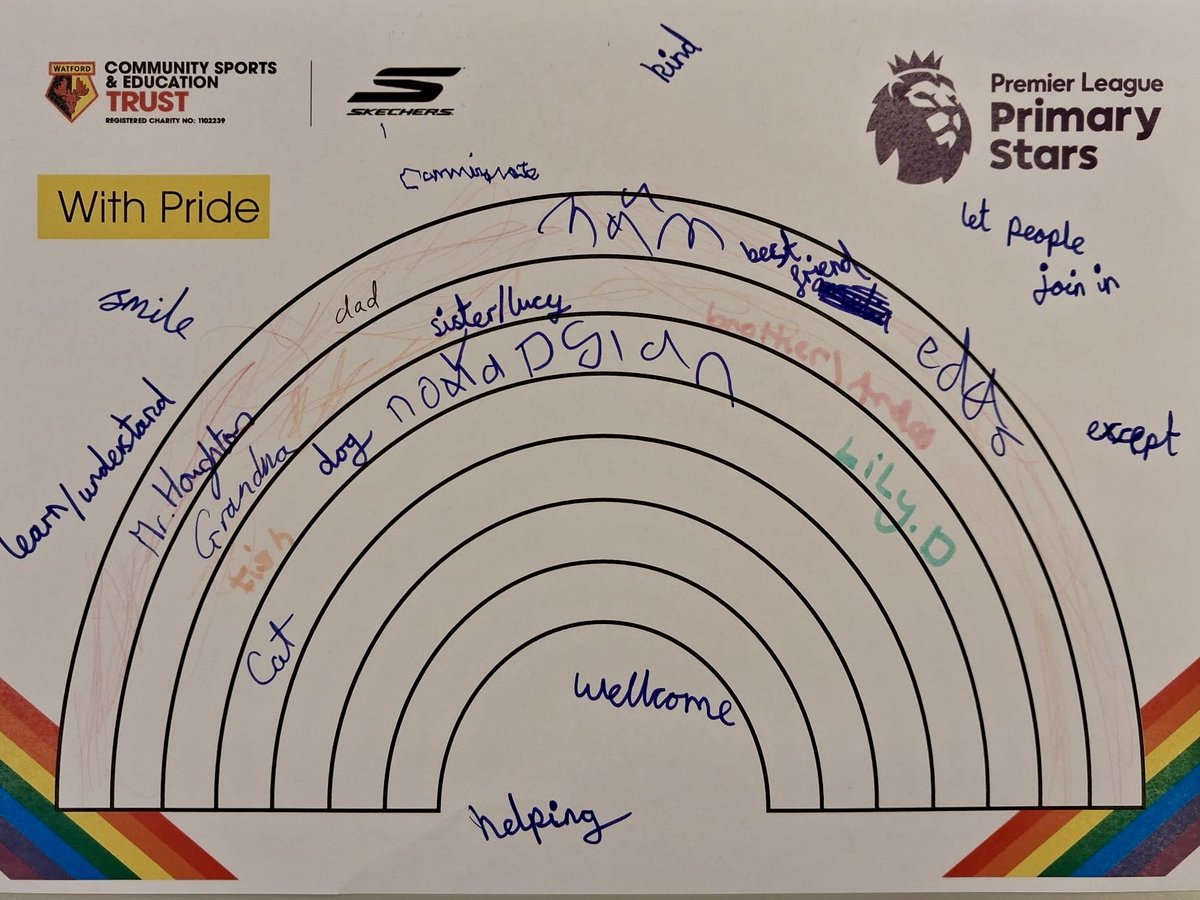 WATFORD
COMMUNITY SPORTS
& EDUCATION
TRUST
REGISTERED CHARITY NO: 1102239
SKECHERS
kind
Premier League
Primary
Stars
With Pride
let people
join in
best
friend
smile
dad
sister/lucy
brother/
eddy
except
learn/understand
Mr. Houghton
Grandma
dog
LiLy.D
Cat
wellcome
helping